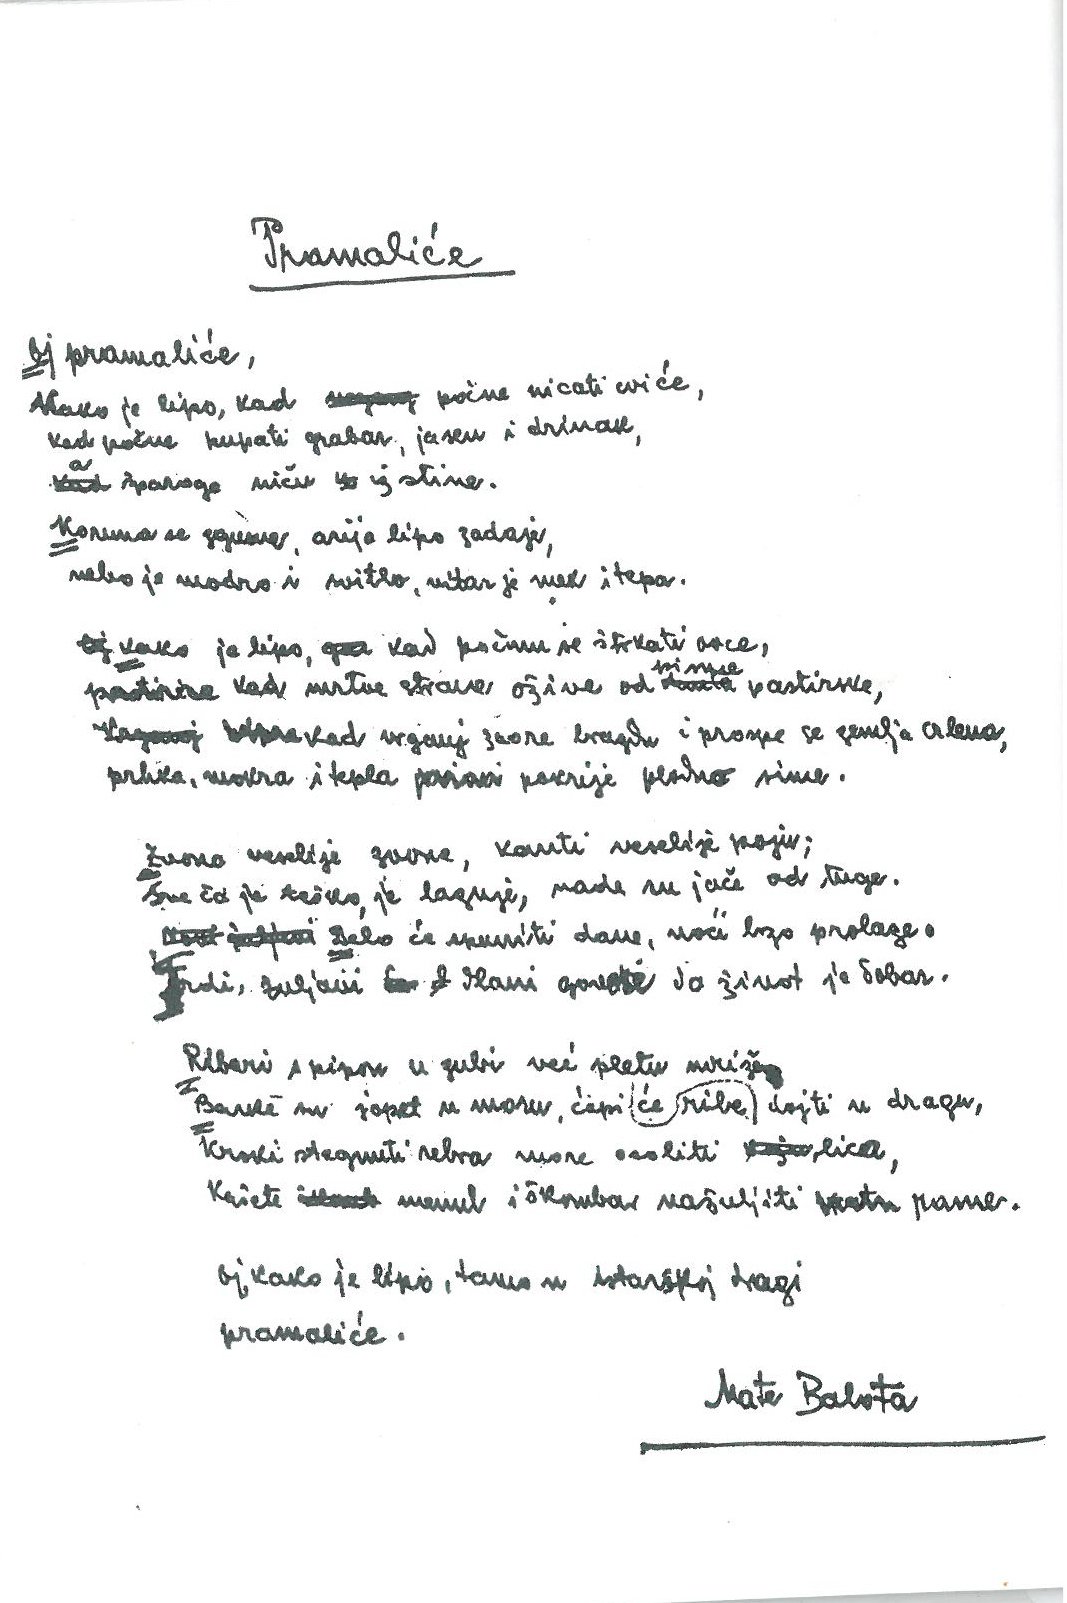 Pramaliće
Oj pramaliće,
Kako je lipo, kad počne nicati cviće,
kad počne pupati grabar, jasen i drinak,
a šparoge niču iz stine.
Koruna se zgùsne, arija lipo zadaje,
nebo je modro i svitlo, vitar je mek i tepa.
kako je lipo, kad počnu se štrkati ovce,
kad mrtve strane ožive od pisme pastirske,
kad vrganj zaore brazdu i prospe se zemlja crlena,
prhka, mokra i tepla pokrije plodno sime.
Zvona veselije zvone, kanti veselije pojiv;
Sve ča je teško, je lagnje, nade su jače od tuge.
Delo će spuniti dane, noći brzo prolaze.
Trdi, žuljavi dlani govore da život je dobar.
Ribari s pipon u zubi već pletu mriže
Barke su zopet u moru, ćepi će ribe dojti u dragu,
Kroski stegnuti rebra more osoliti lica,
Kašete menul i škombar nažuljiti rame.
Oj, kako je lipo, tamo u istarskoj dragi
pramaliće.
Mate Balota